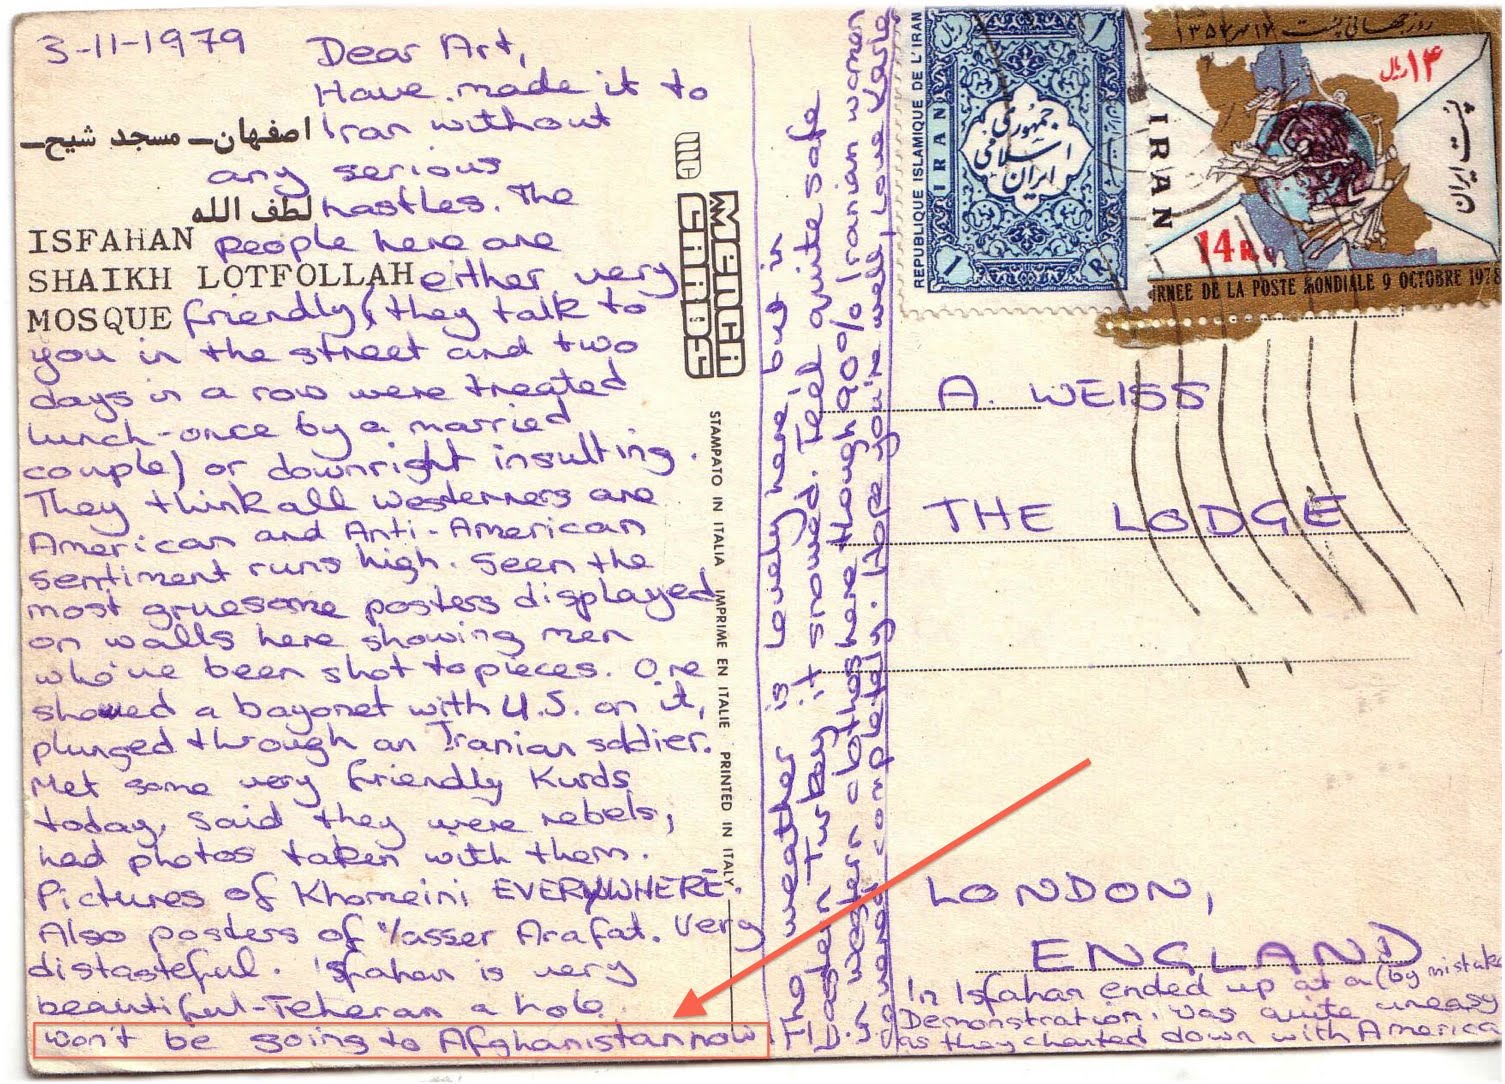 3-11-1979
Dear Art,
Have made it to
Iran without
any serious
hastles. The
people here are
either very
friendly (they talk to
you in the street and two
days in a row were treated
lunch-once by a married
couple) or downright insulting.
They think all westerners are
American and Anti-American
sentiment runs high. Seen the
most gruesome posters displayed
on walls here showing men
who've been shot to pieces. One
showed a bayonet with U.S. on it,
plunged through an Iranian soldier.
Met some very friendly Kurds
today, said they were rebels,
had photos taken with them.
Pictures of Khomeini EVERYWHERE.
Also posters of Yasser Arafat. Very
distasteful. Isfahan is very
beautiful-Teheran a hole.
won't be going to Afghanistan now.
اصفهان - مسجد شیخ -
لطف الله
ISFAHAN
SHAIKH LOTFOLLAH
MOSQUE
MC
MENCA
CARDS
STAMPATO IN ITALIA IMPRIME EN ITALIE PRINTED IN ITALY
The weather is lovely here, but in
Eastern Turkey it snowed. Feel quite safe
in western clothes here though 90% Iranian women
covered completely. Hope you're well, Love
REPUBLIQUE ISLAMIQUE DE L'IRAN
IRAN
1
1 R
جمهوری
اسلامی
ایران
روز جهانی پست ۱۷ مهر ۱۳۵۷
۱۴ ریال
پست ایران
IRAN
14 R
JRNEE DE LA POSTE MONDIALE 9 OCTOBRE 1978
A. WEISS
THE LODGE
LONDON,
ENGLAND
In Isfahan ended up at a (by mistake
Demonstration, was quite uneasy
as they chanted down with America